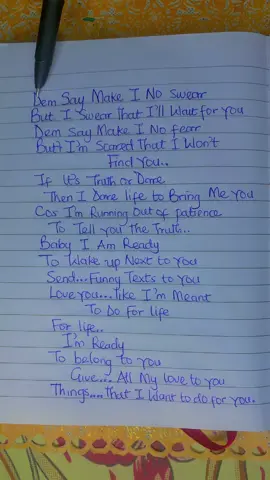 Dem Say Make I No Swear
But I Swear That I'll Wait for you
Dem Say Make I No fear
But I'm Scared That I Won't
Find You..
If It's Truth or Dare
Then I Dare life to Bring Me you
Cos I'm Running Out of patience
To Tell you The Truth..
Baby I Am Ready
To Wake up Next to you
Send...Funny Texts to you
Love you...like I'm Meant
To Do For life
For life...
I'm Ready
To belong to you
Give.... All My love to you
Things....That I Want to do for you.